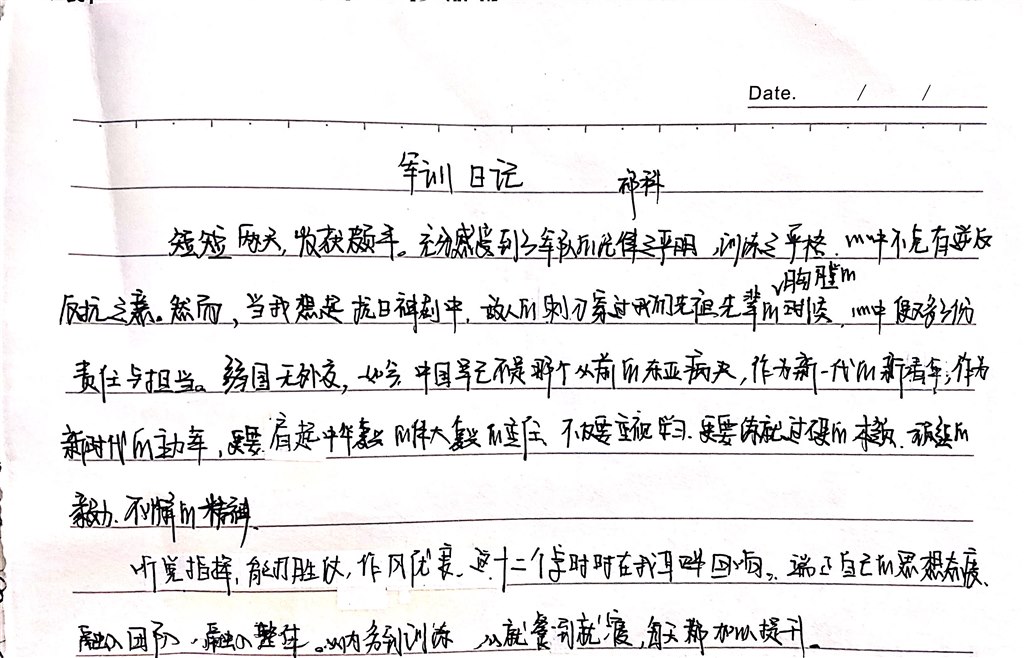 Date. / /
军训日记 祁科
短短两天,收获颇丰。充分感受到了军队的纪律之严明,训练之严格.心中不免有要反
反抗之意。然而,当我想起抗日神剧中,敌人的刺刀穿过我们先祖先辈的胸膛的时候,心中便又多了份
责任与担当。弱国无外交,如今中国早已不是那个以前的东亚病夫,作为新一代的新青年,作为
新时代的主力军,更要肩起中华复兴的伟大复兴的责任 不仅要重视学习.更要练就过硬的本领、顽强的
毅力、不懈的精神.
听党指挥,能打胜仗,作风优良、这十二个字时时在我耳畔回响。端正自己的思想态度、
融入团队、融入整体。从内务到训练 从就餐到就寝,每天都加以提升。